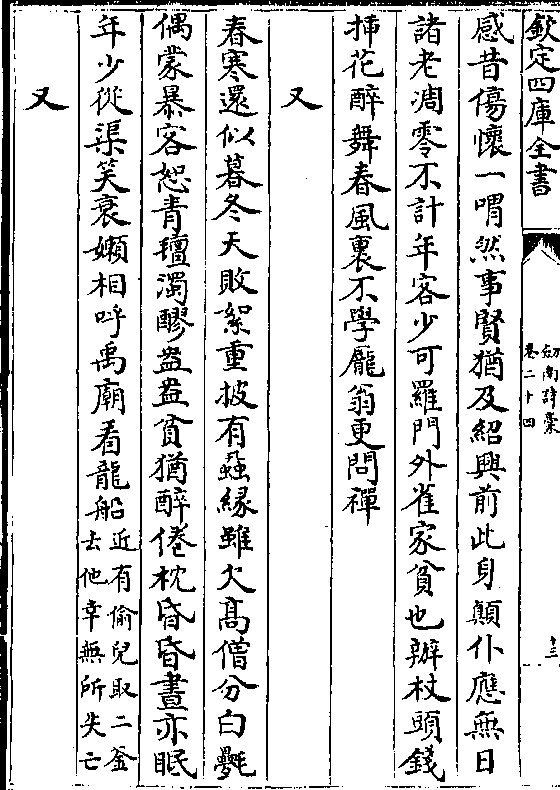 欽定四庫全書
劒南詩槀
卷二十四
三
感昔傷懷一喟然事賢猶及紹興前此身顛仆應無日
諸老凋零不計年客少可羅門外雀家貧也辦杖頭錢
挿花醉舞春風裏不學龐翁更問禪
又
春寒還似暮冬天敗絮重披有蝨緣雖欠高僧分白㲲
偶蒙暴客恕青氊濁醪盎盎貧猶醉倦枕昏昏晝亦眠
年少從渠笑衰嬾相呼禹廟看龍船近有偷兒取二釜
去他幸無所失亡
又